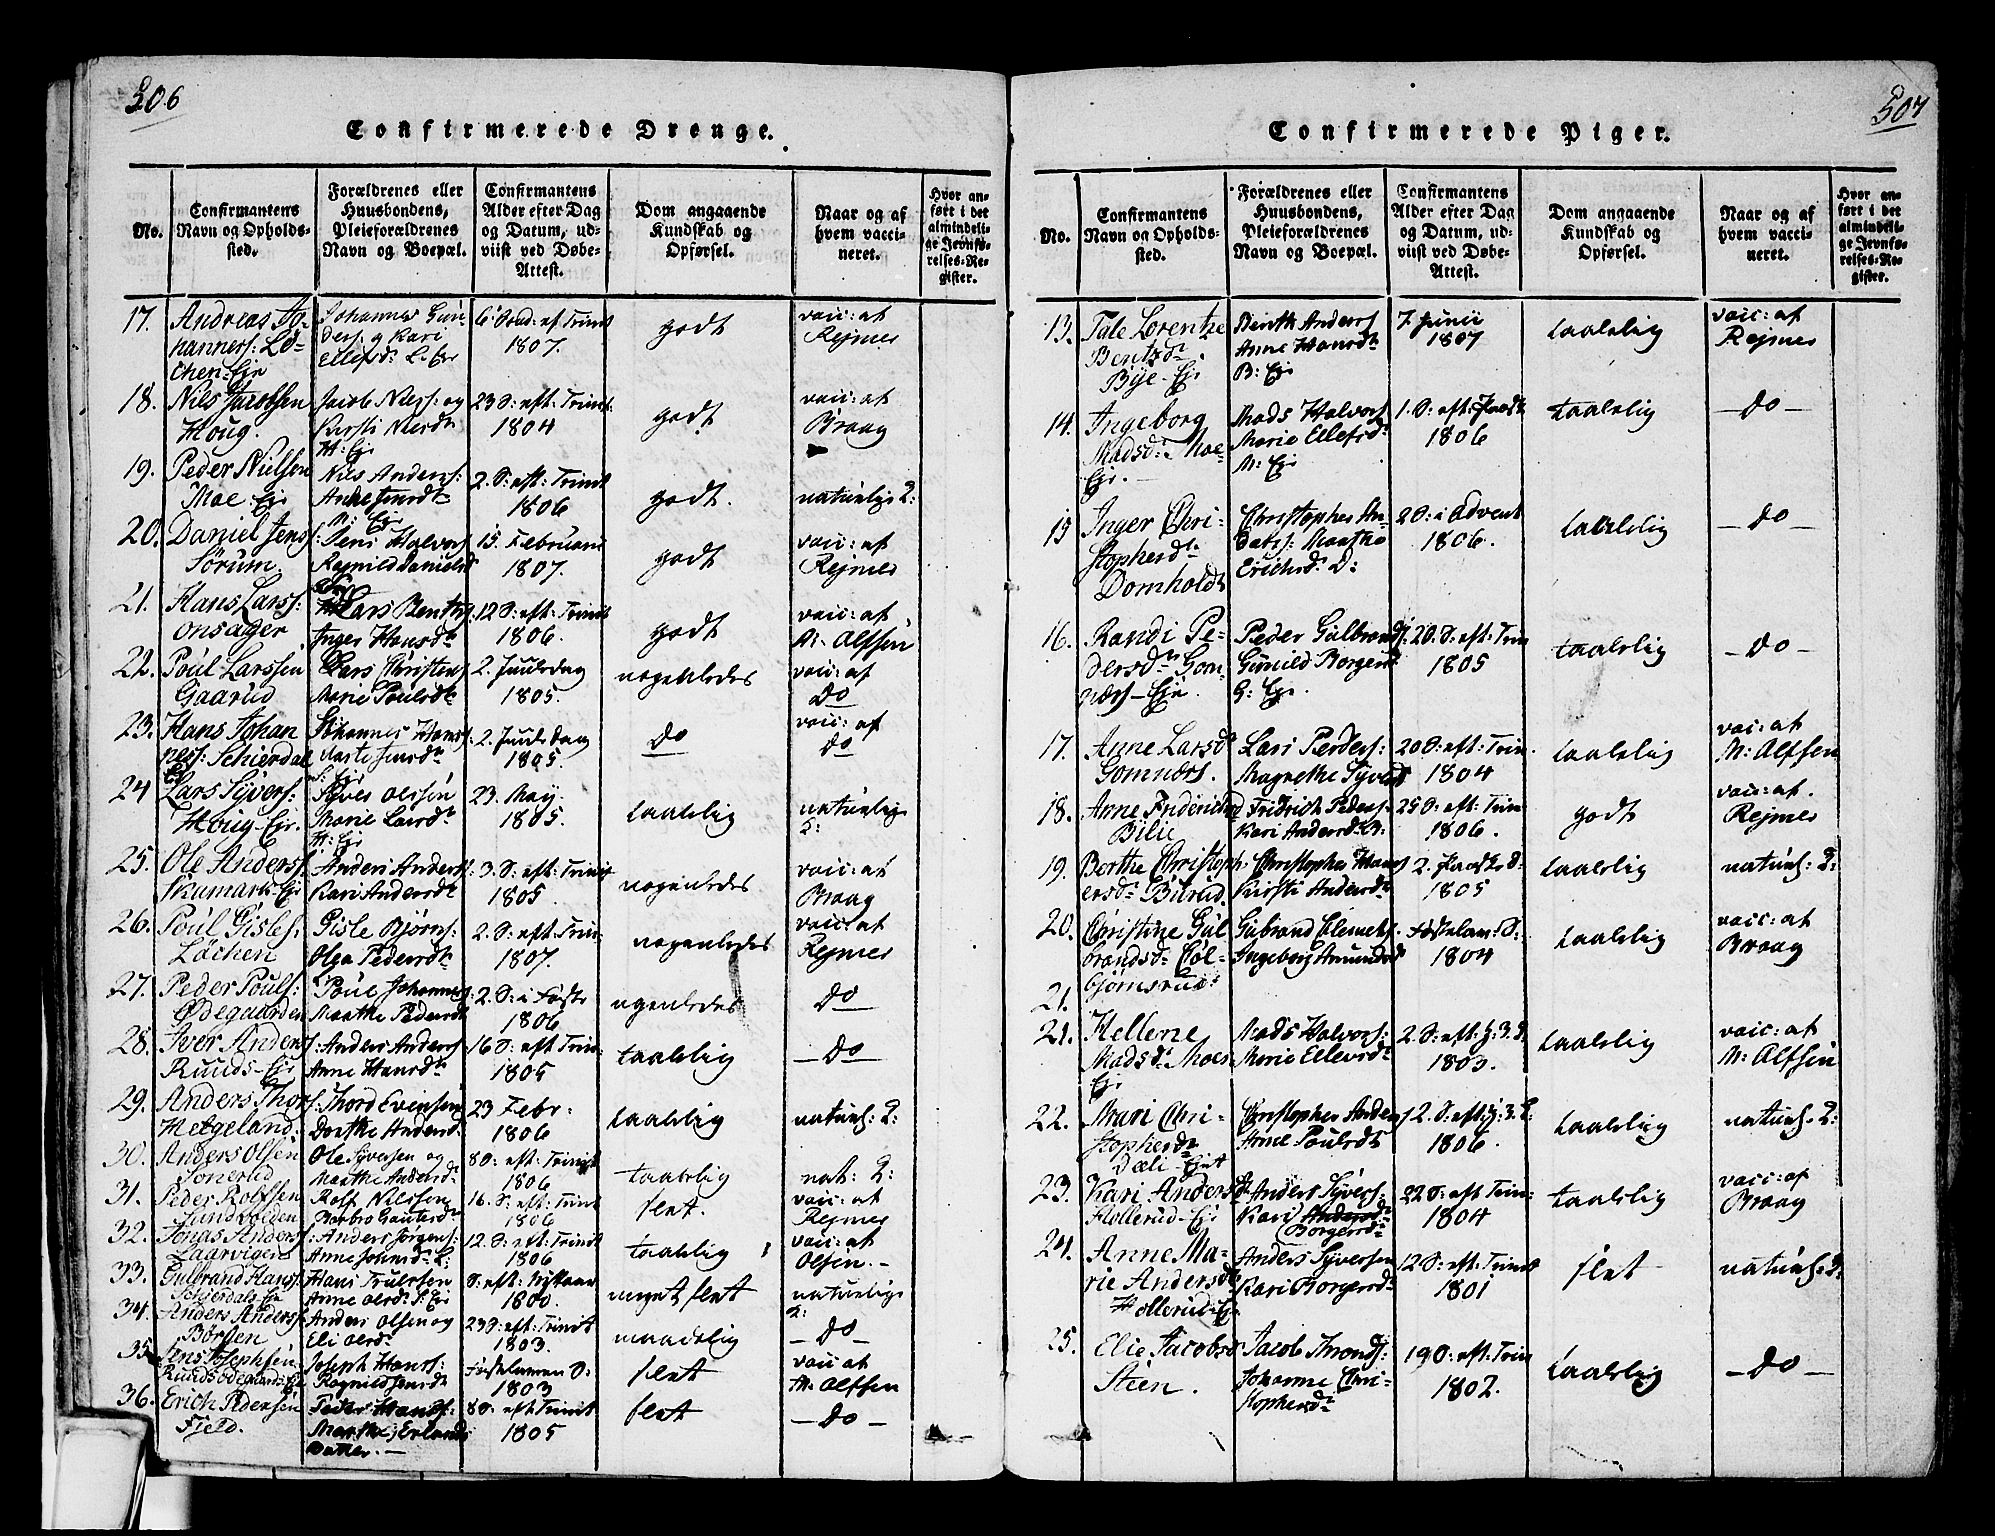 506
Confirmerede Drenge.
No.
Confirmantens Navn og Opholdssted.
Forældrenes eller Huusbondens, Pleieforældrenes Navn og Boepæl.
Confirmantens Alder efter Dag og Datum, udviist ved Døbe-Attest.
Dom angaaende Kundskab og Opførsel.
Naar og af hvem vaccineret.
Hvor anført i det almindelige Jevnførelses-Register.
17. Andreas Johanners: Løchen: Eje
Johannes
Ders: og Kari
6 Sønd: ef. Trinit
1807.
godt
vaic: af
Rejmes
18. Nils Jacobsen
Houg.
Jacob Niels: og
Kirsti Nielsdr
H: Eje
23 S: eft: Trinit:
1804
godt
vaic: af
Braag
19. Peder Nielsen
Moe Eje
Nils Anders:
M: Eje
2. S: eft: Trinit
1806
godt.
naturlige
20. Daniel Jens
Sørum.
Jens Halvors
Rejnild Danielsd
15. Februarii
1807.
godt
vaic: af
Rejmes
21. Hans Lars:
Onsager
Lars Bentes
Inger Hansdr
12 S: eft: Trinit
1806.
godt
vaic: af
M: Alfsen
22. Poul Larssen
Gaarud
Lars Christens
Marie Poulsdr
2. Juuledag
1805.
nogenledes
vaic: af
Do
23. Hans Johan
ners: Schierdal
Johannes Hans
2. Juuledag
1805.
Do
vaic: af
Do
24 Lars Syvers:
Houg-Eje.
Syver Olssøn
Marie Larsdr
H: Eje
23. May
1805.
taalelig
naturlige
25. Ole Anders:
Anders Anders
Kari Andersdr
3. S: eft: Trinit
1805.
nogenledes
vaic: af
Braag
26. Poul Gisles:
Løchen
Gisle Bjørns:
Olga Pedersdr
2. S: eft: Trini
1807.
nogenledes
vaic: af
Rejmes
27. Peder Pouls:
Ødegaarden
Poul Johannes
Marthe Pedersdr
2. S: i Faste
1806
nogenledes
Do
28. Iver Anders
Ruuds-Eje
Anders Anders:
Anne Hansdr
16 S: eft Trini
1805
taalelig
Do
29. Anders Thors
Metgeland:
Thord Evensen
Dorthe Andersd:
23 Febr:
1806
taalelig
30. Anders Olsen
Ole Syversen og
Marthe Andersd:
8 S: eft: Trinit
1806
taalelig
31. Peder Rolfsen
Sundvolden
Rolf Nilssen
16. S: eft: Trinit
1806
slet.
vaic: af
Rejmes
32. Jonas Anders
Laarvigen
Anders Jørgens:
12. S: eft: Trinit
1806
taalelig
vaic: af
Olsen.
33. Gulbrand Hans:
Hans Truelssen
Anne Olsdr S: Eje
1800.
meget slet
naturlige
34. Anders Anders
Børgen
Anders Olsen og
Eli Olsdr
23 S: eft: Trinit
1803.
maadelig
Do
35. Jens Josephsen
Joseph Hans:
Fastelavnen S:
1803
slet
vaic af
M: Alfsen
36. Erich Pedersen
Field.
Peder Hans:
Marthe Erlands
Datter.
8 S: eft Trinit
1805
slet
Do
507
Confirmerede Piger.
No.
Confirmantens Navn og Opholdssted.
Forældrenes eller Huusbondens, Pleieforældrenes Navn og Boepæl.
Confirmantens Alder efter Dag og Datum, udviist ved Døbe-Attest.
Dom angaaende Kundskab og Opførsel.
Naar og af hvem vaccineret.
Hvor anført i det almindelige Jevnførelses-Register.
13. Tale Lorentze
Bentsdr
Bye-Eje
Benth Anders
Anne Hansdr
B: Eje
7 Junii
1807
taalelig
vaic: af
Rejmes
14. Ingeborg
Madsd: Moe-
Eje.
Mads Halvors
Marie Ellefsdr
M: Eje
1. S: eft:
1806
taalelig
Do
15 Inger Chri-
stophersdr
Domholdt
Christopher
Marthe
Erichsdr D:
2 S: i Advent
1806.
taalelig
Do
16. Randi Pe-
dersdr Gom-
nærs-Eje.
Peder Gulbrands
Gunild Borgersd
G: Eje.
20. S: eft: Trin
1805
taalelig
Do
17. Anne Larsdr
Gomnærs.
Lars Peders:
Magrethe Syversd
20 S: eft: Trin
1804
taalelig
vaic: af
M: Alfsen
18. Anne Friderichsd
Bilie
Fridrich Peders:
Kari Andersdr B:
25 S: eft: Trin
1806.
godt
vaic: af.
Rejmes
19. Berthe Christoph-
ersdr Bilerud
Christopher Hans
Kirsti Andersdr
2. Paaske D:
1805
taalelig
20. Christine Gul
brandsdr Col-
bjørnsrud:
Gulbrand Clemets
Ingeborg Amundsd
Fastelavns S:
1804
taalelig
vaic: af
Braag
21.
21. Hellene
Madsd: Moes
Eje
Mads Halvors:
Marie Ellevsdr
1803.
taalelig
vaic: af
M: Alfsen
22. Mari Chri-
stophersdr
Dæli-Ejet
Christopher Anders
Anne Poulsdr
1806.
taalelig
23. Kari Andersd
Hollerud-Eje
Anders Syvers:
Kari Andersdr
Borgersdr
22 S: eft Trin
1804
taalelig
vaic: af
Braag
24. Anne Ma-
rie Andersdr
Hollerud-Eje
Anders Syversen
Kari Borgersdr
12 S: eft: Trinit
1801
slet
25. Elie Jacobsd
Steen.
Jacob Thronds:
Johanne Chri-
stophersdr
19 S: eft: Trin
1802.
taalelig
Do